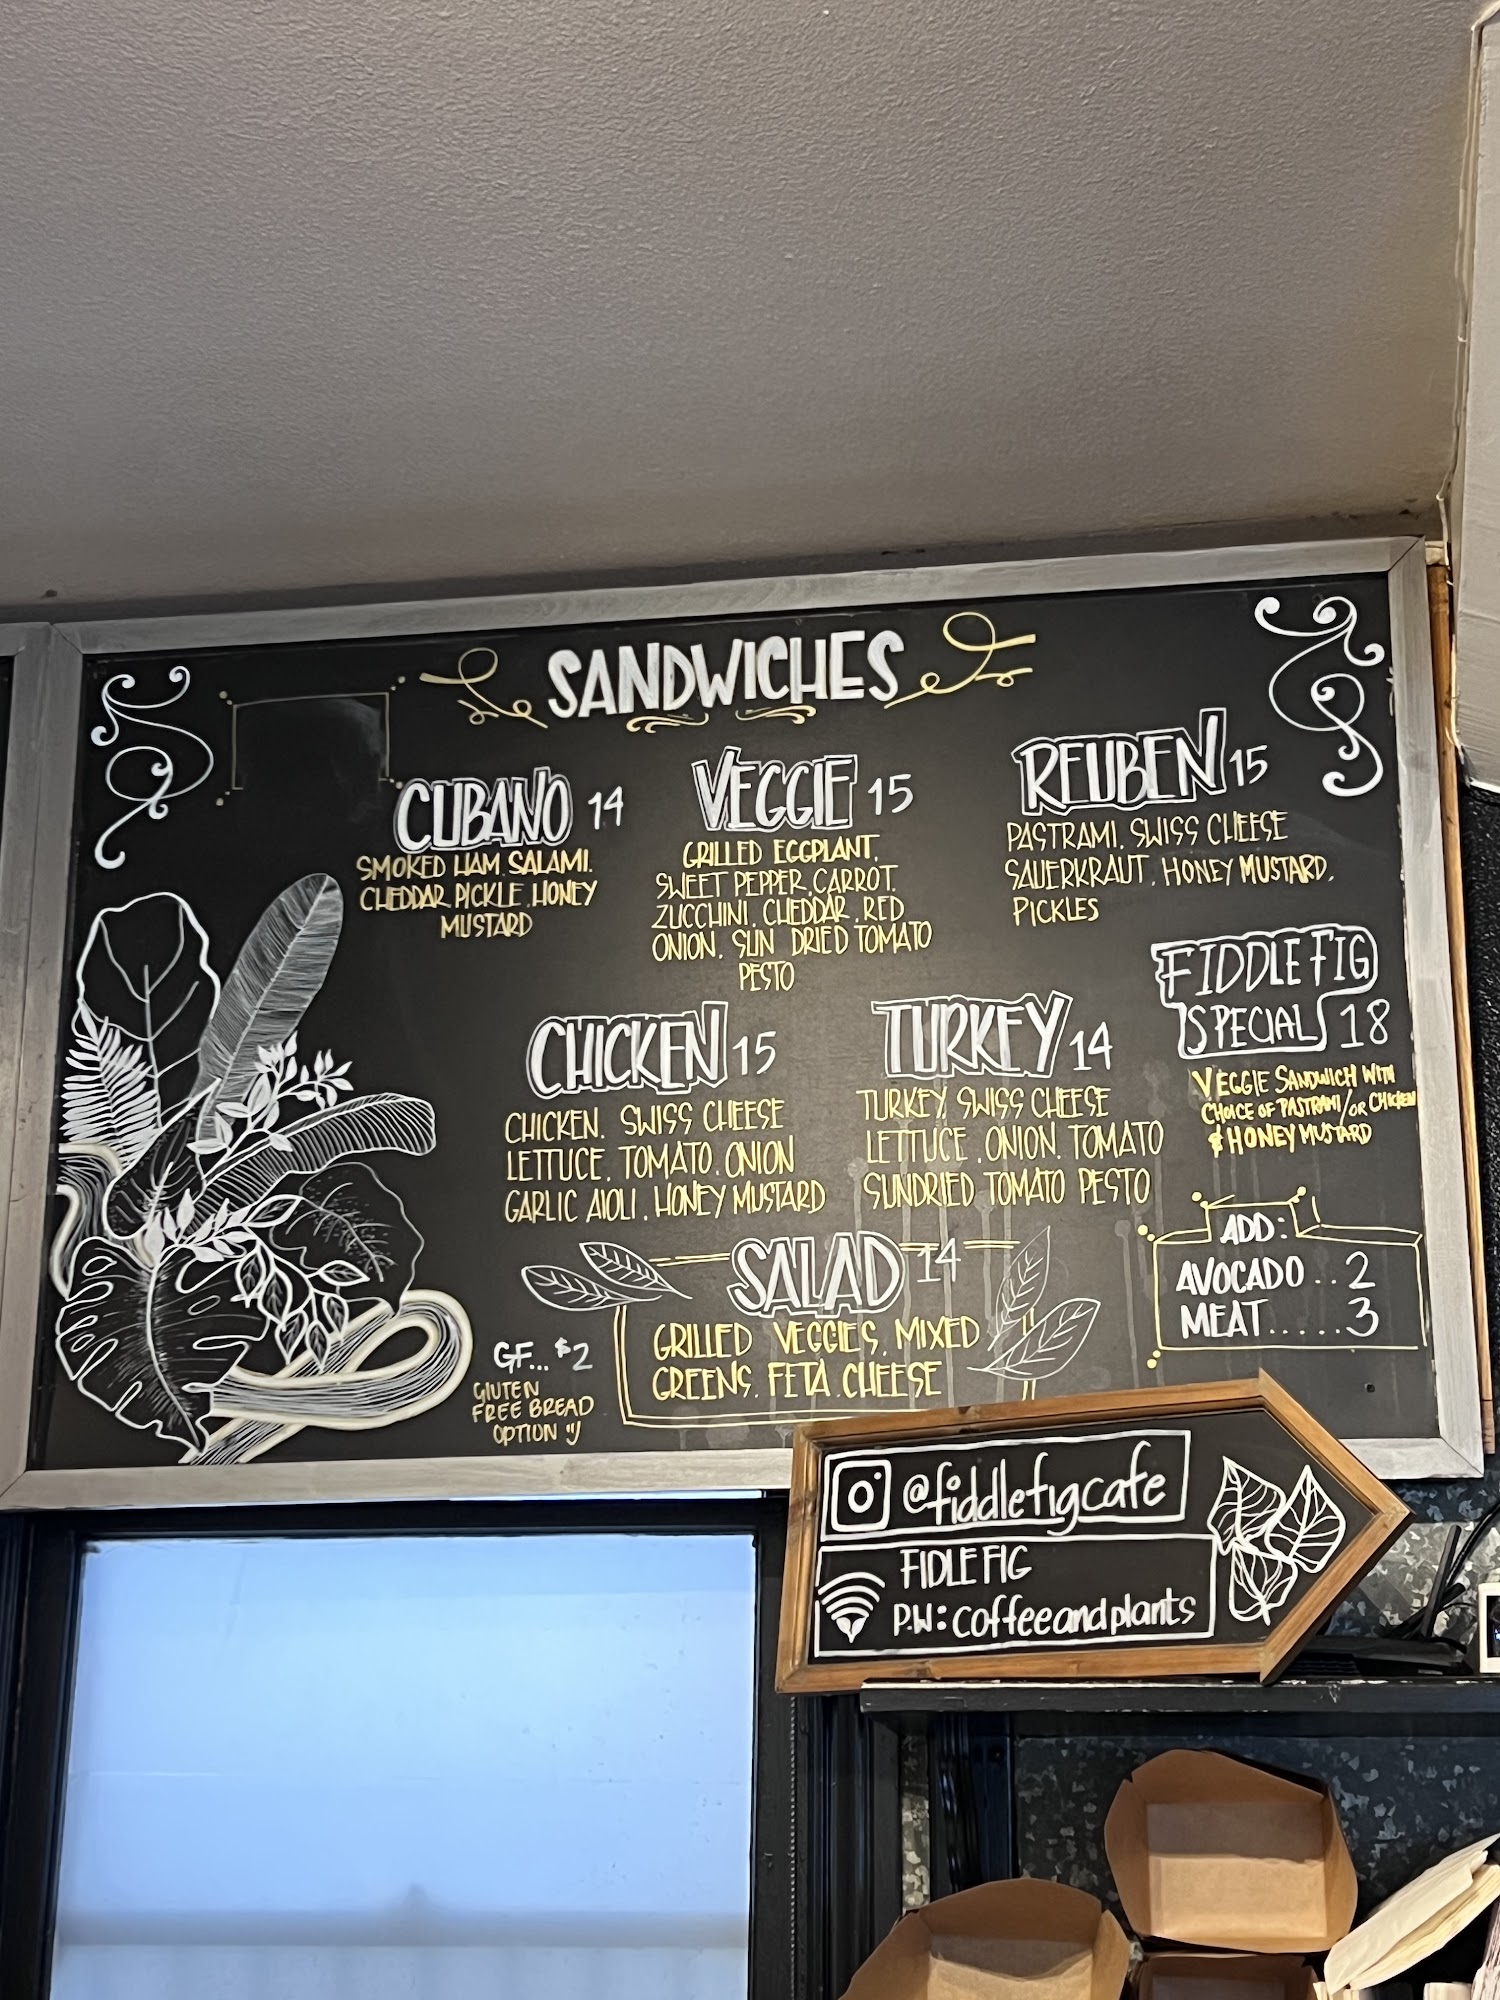 SANDWICHES
CUBANO 14
SMOKED HAM. SALAMI.
CHEDDAR. PICKLE. HONEY
MUSTARD
VEGGIE 15
GRILLED EGGPLANT.
SWEET PEPPER. CARROT.
ZUCCHINI. CHEDDAR. RED
ONION. SUN DRIED TOMATO
PESTO
REUBEN 15
PASTRAMI. SWISS CHEESE
SAUERKRAUT. HONEY MUSTARD.
PICKLES
CHICKEN 15
CHICKEN. SWISS CHEESE
LETTUCE. TOMATO. ONION
GARLIC AIOLI. HONEY MUSTARD
TURKEY 14
TURKEY. SWISS CHEESE
LETTUCE. ONION. TOMATO
SUNDRIED TOMATO PESTO
FIDDLE FIG
SPECIAL 18
VEGGIE SANDWICH WITH
CHOICE OF PASTRAMI/OR CHICKEN
& HONEY MUSTARD
SALAD 14
GRILLED VEGGIES. MIXED
GREENS. FETA. CHEESE
GF... $2
GLUTEN
FREE BREAD
OPTION :)
ADD:
AVOCADO..2
MEAT.....3
@fiddlefigcafe
FIDLE FIG
P.W: coffeeandplants